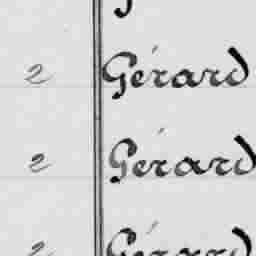 2 Gérard
2 Gérard
2 Gérard